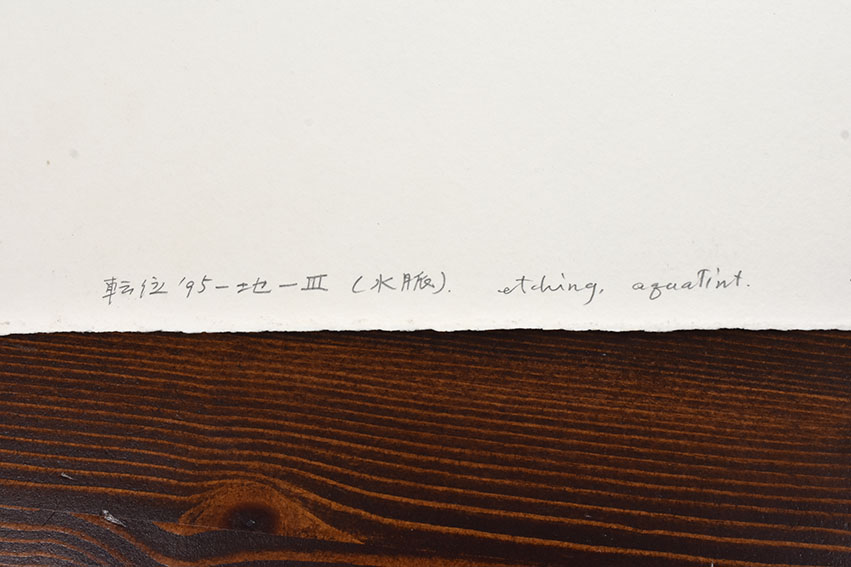 転位'95-地-Ⅲ (水脈). etching, aquatint.